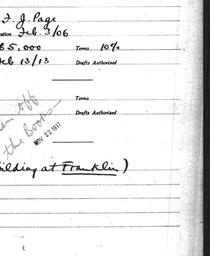 F. J. Page
ation Feb. 3/06
$5.000 Terms 10%
Feb 13/13 Drafts Authorised
Terms
off
Drafts Authorised
the Books
NOV 23 1917
uilding at Franklin)